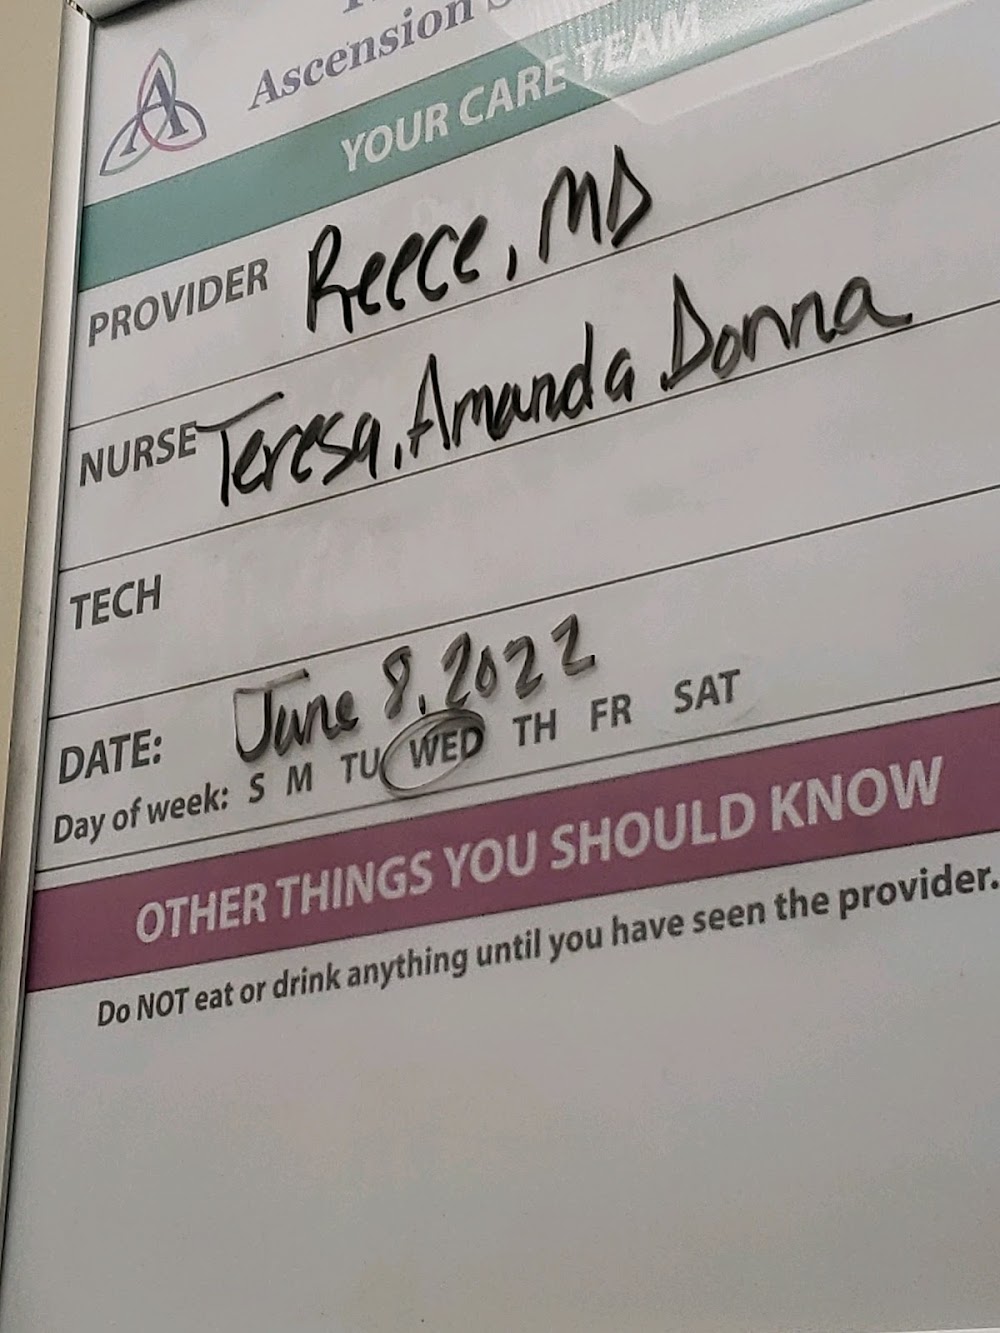 Ascension
YOUR CARE TEAM
PROVIDER Reece, MD
NURSE Teresa, Amanda Donna
TECH
DATE: June 8, 2022
Day of week: S M TU WED TH FR SAT
OTHER THINGS YOU SHOULD KNOW
Do NOT eat or drink anything until you have seen the provider.